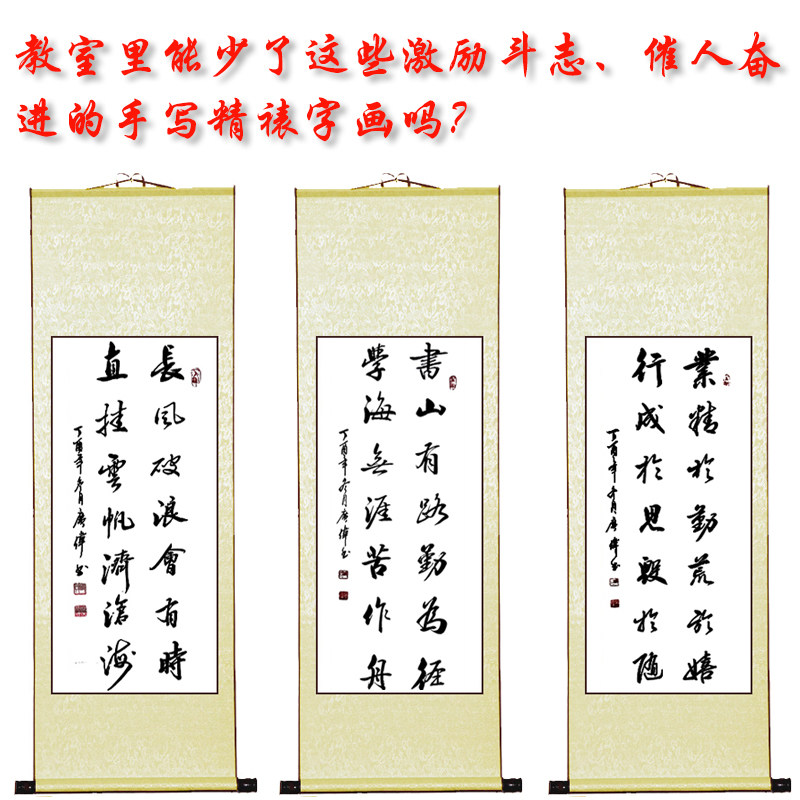 教室里能少了这些激励斗志、催人奋
进的手写精裱字画吗?
長風破浪會有時
直挂雲帆濟滄海
丁酉年冬月唐偉书
书山有路勤為徑
学海無涯苦作舟
丁酉年冬月唐偉书
業精於勤荒於嬉
行成於思毀於随
丁酉年冬月唐偉书